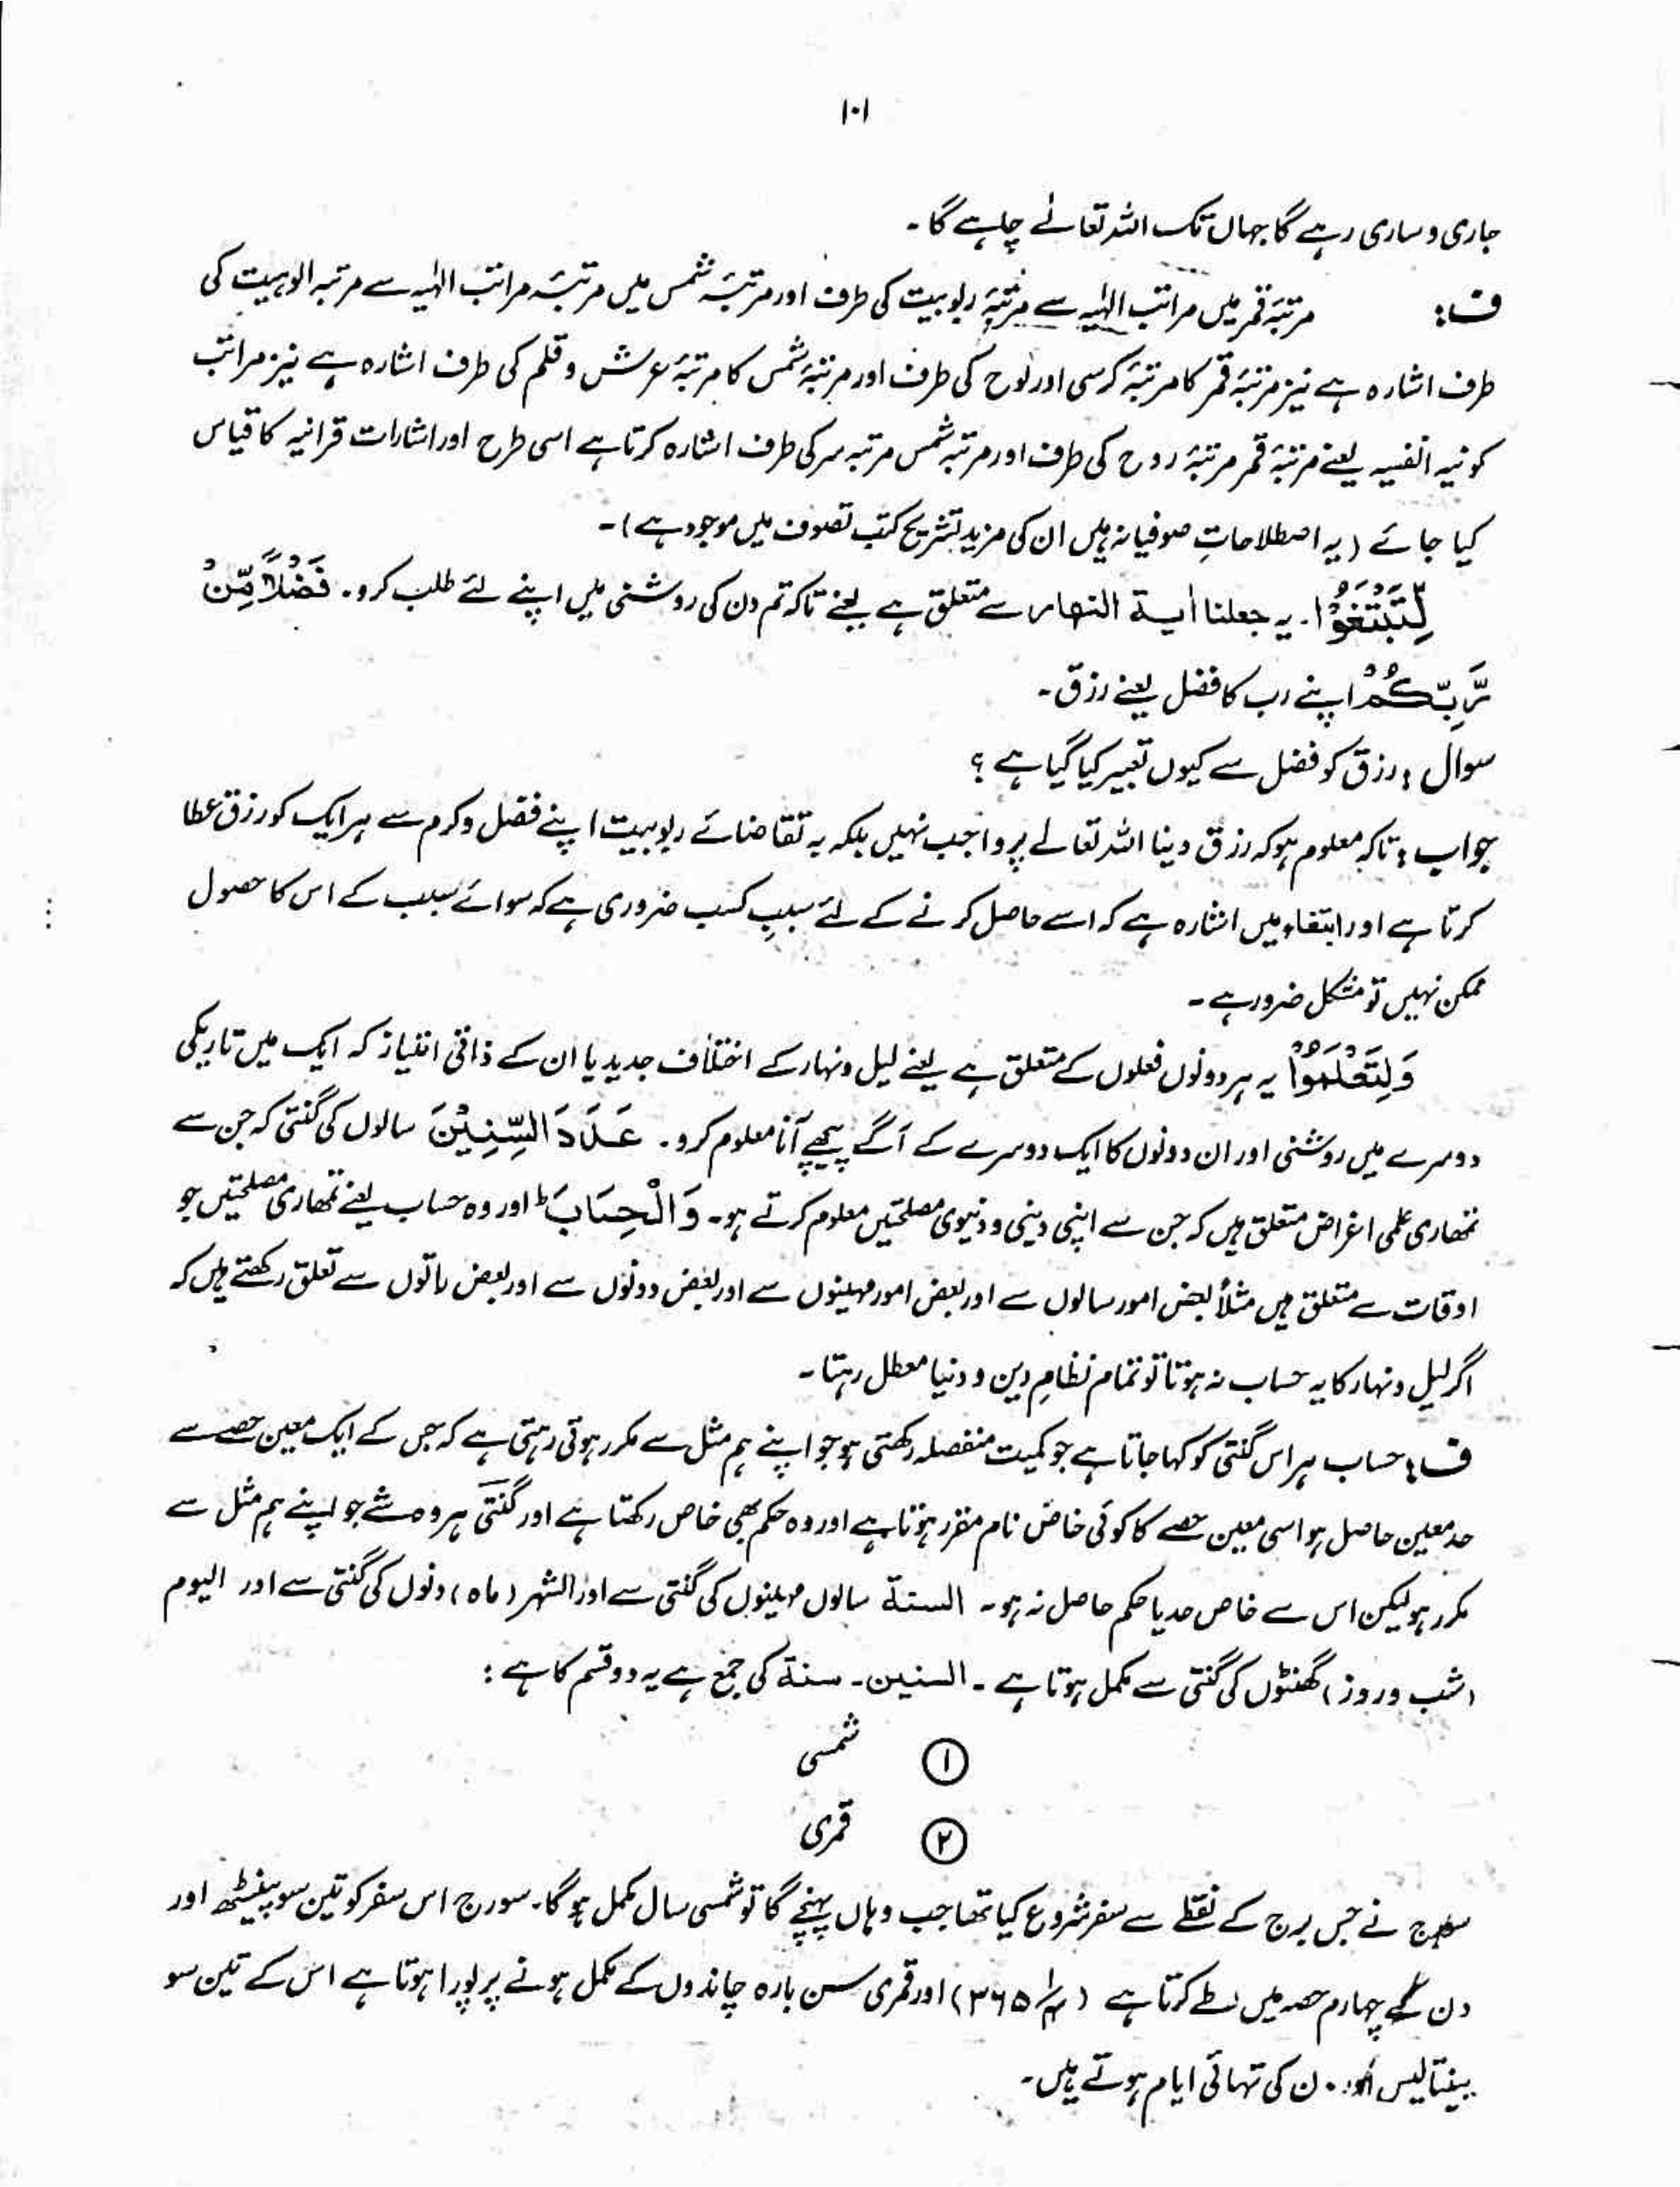 ۱۰۱
جاری و ساری رہے گا جہاں تک اللہ تعالےٰ چاہے گا۔
ف: مرتبۂ قمر میں مراتب الٰہیہ سے مرتبۂ ربوبیت کی طرف اور مرتبۂ شمس میں مرتبۂ مراتب الٰہیہ سے مرتبہ الوہیت کی
طرف اشارہ ہے نیز مرتبۂ قمر کا مرتبۂ کرسی اور لوح کی طرف اور مرتبۂ شمس کا مرتبۂ عرش و قلم کی طرف اشارہ ہے نیز مراتب
کونیہ انفسیہ یعنے مرتبۂ قمر مرتبۂ روح کی طرف اور مرتبہ شمس مرتبہ سر کی طرف اشارہ کرتا ہے اسی طرح اور اشارات قرانیہ کا قیاس
کیا جائے (یہ اصطلاحاتِ صوفیانہ ہیں ان کی مزید تشریح کتب تصوف میں موجود ہے)۔
لِّتَبْتَغُوْا۔ یہ جعلنا اٰیۃ النھار سے متعلق ہے یعنے تاکہ تم دن کی روشنی میں اپنے لئے طلب کرو۔ فَضْلًا مِّنْ
رَّبِّكُمْ اپنے رب کا فضل یعنے رزق۔
سوال: رزق کو فضل سے کیوں تعبیر کیا گیا ہے؟
جواب: تاکہ معلوم ہو کہ رزق دینا اللہ تعالےٰ پر واجب نہیں بلکہ بہ تقاضائے ربوبیت اپنے فضل و کرم سے ہر ایک کو رزق عطا
کرتا ہے اور ابتغاء میں اشارہ ہے کہ اسے حاصل کرنے کے لئے سببِ کسب ضروری ہے کہ سوائے سبب کے اس کا حصول
ممکن نہیں تو مشکل ضرور ہے۔
وَلِتَعْلَمُوْا یہ ہر دونوں فعلوں کے متعلق ہے یعنے لیل و نہار کے اختلاف جدید یا ان کے ذاتی امتیاز کہ ایک میں تاریکی
دوسرے میں روشنی اور ان دونوں کا ایک دوسرے کے آگے پیچھے آنا معلوم کرو۔ عَدَدَ السِّنِیْنَ سالوں کی گنتی کہ جن سے
تمھاری علمی اغراض متعلق ہیں کہ جن سے اپنی دینی و دنیوی مصلحتیں معلوم کرتے ہو۔ وَالْحِسَابَ ؕ اور وہ حساب یعنے تمھاری مصلحتیں جو
اوقات سے متعلق ہیں مثلاً بعض امور سالوں سے اور بعض امور مہینوں سے اور بعض دونوں سے اور بعض راتوں سے تعلق رکھتے ہیں کہ
اگر لیل و نہار کا یہ حساب نہ ہوتا تو تمام نظامِ دین و دنیا معطل رہتا۔
ف: حساب ہر اس گنتی کو کہا جاتا ہے جو کمیت منفصلہ رکھتی ہو جو اپنے ہم مثل سے مکرر ہوتی رہتی ہے کہ جس کے ایک معین حصے سے
حد معین حاصل ہو اسی معین حصے کا کوئی خاص نام مقرر ہوتا ہے اور وہ حکم بھی خاص رکھتا ہے اور گنتی ہر وہ شے جو اپنے ہم مثل سے
مکرر ہو لیکن اس سے خاص حد یا حکم حاصل نہ ہو۔ السنۃ سالوں مہینوں کی گنتی سے اور الشہر (ماہ) دنوں کی گنتی سے اور الیوم
(شب و روز) گھنٹوں کی گنتی سے مکمل ہوتا ہے۔ السنین۔ سنۃ کی جمع ہے یہ دو قسم کا ہے:
① شمسی
② قمری
سورج نے جس برج کے نقطے سے سفر شروع کیا تھا جب وہاں پہنچے گا تو شمسی سال مکمل ہوگا۔ سورج اس سفر کو تین سو پینسٹھ اور
دن کے چہارم حصہ میں طے کرتا ہے (۳۶۵ ۱/۴) اور قمری سن بارہ چاندوں کے مکمل ہونے پر پورا ہوتا ہے اس کے تین سو
پینتالیس اور دن کی تہائی ایام ہوتے ہیں۔